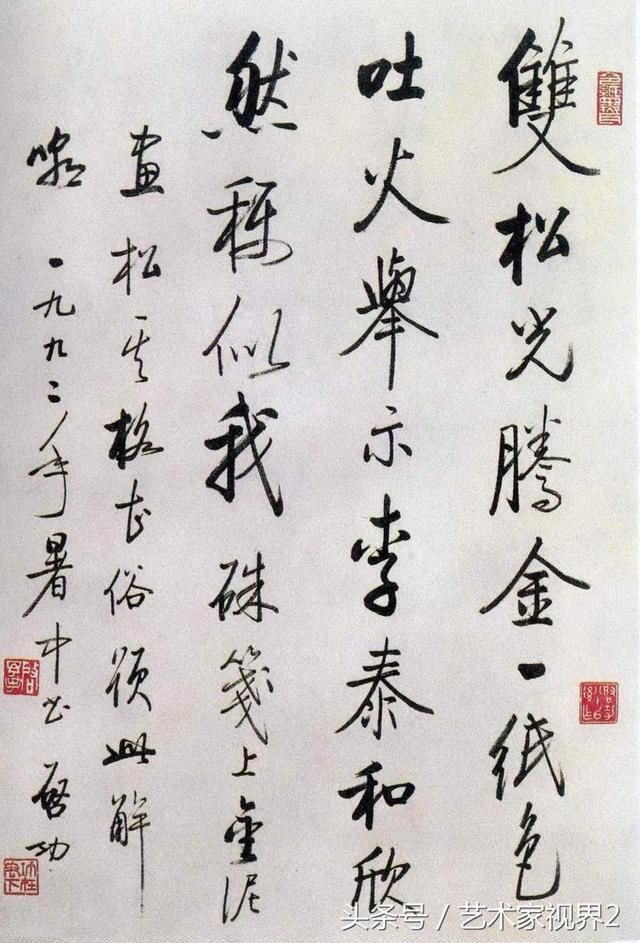 雙松光騰金一紙色
吐火舉示李泰和欣
然稱似我硃箋上金泥
畫松其格甚俗此解
嘲 一九九二年暑中書 啓功
头条号 / 艺术家视界2